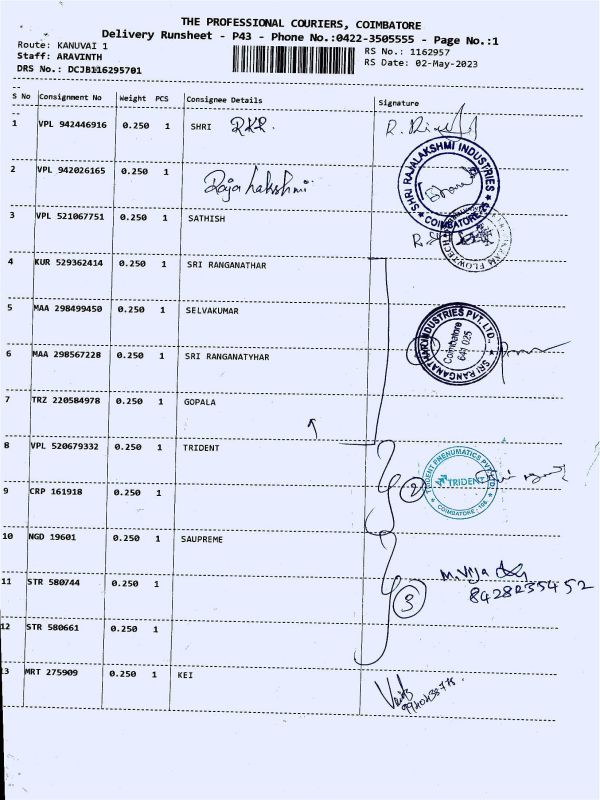 THE PROFESSIONAL COURIERS, COIMBATORE
Delivery Runsheet - P43 - Phone No.:0422-3505555 - Page No.:1
Route: KANUVAI 1
RS No.: 1162957
Staff: ARAVINTH
RS Date: 02-May-2023
DRS No.: DCJB116295701
S No Consignment No Weight PCS Consignee Details Signature
1 VPL 942446916 0.250 1 SHRI RKR.
2 VPL 942026165 0.250 1 Rajalakshmi
SHRI RAJALAKSHMI INDUSTRIES
COIMBATORE
3 VPL 521067751 0.250 1 SATHISH
4 KUR 529362414 0.250 1 SRI RANGANATHAR
5 MAA 298499450 0.250 1 SELVAKUMAR
SRI RANGANATHAR INDUSTRIES PVT. LTD.,
Coimbatore
641 025
6 MAA 298567228 0.250 1 SRI RANGANATYHAR
7 TRZ 220584978 0.250 1 GOPALA
8 VPL 520679332 0.250 1 TRIDENT
TRIDENT PNEUMATICS PVT
TRIDENT
COIMBATORE
2
9 CRP 161918 0.250 1
10 NGD 19601 0.250 1 SAUPREME
11 STR 580744 0.250 1
8428235452
3
12 STR 580661 0.250 1
13 MRT 275909 0.250 1 KEI